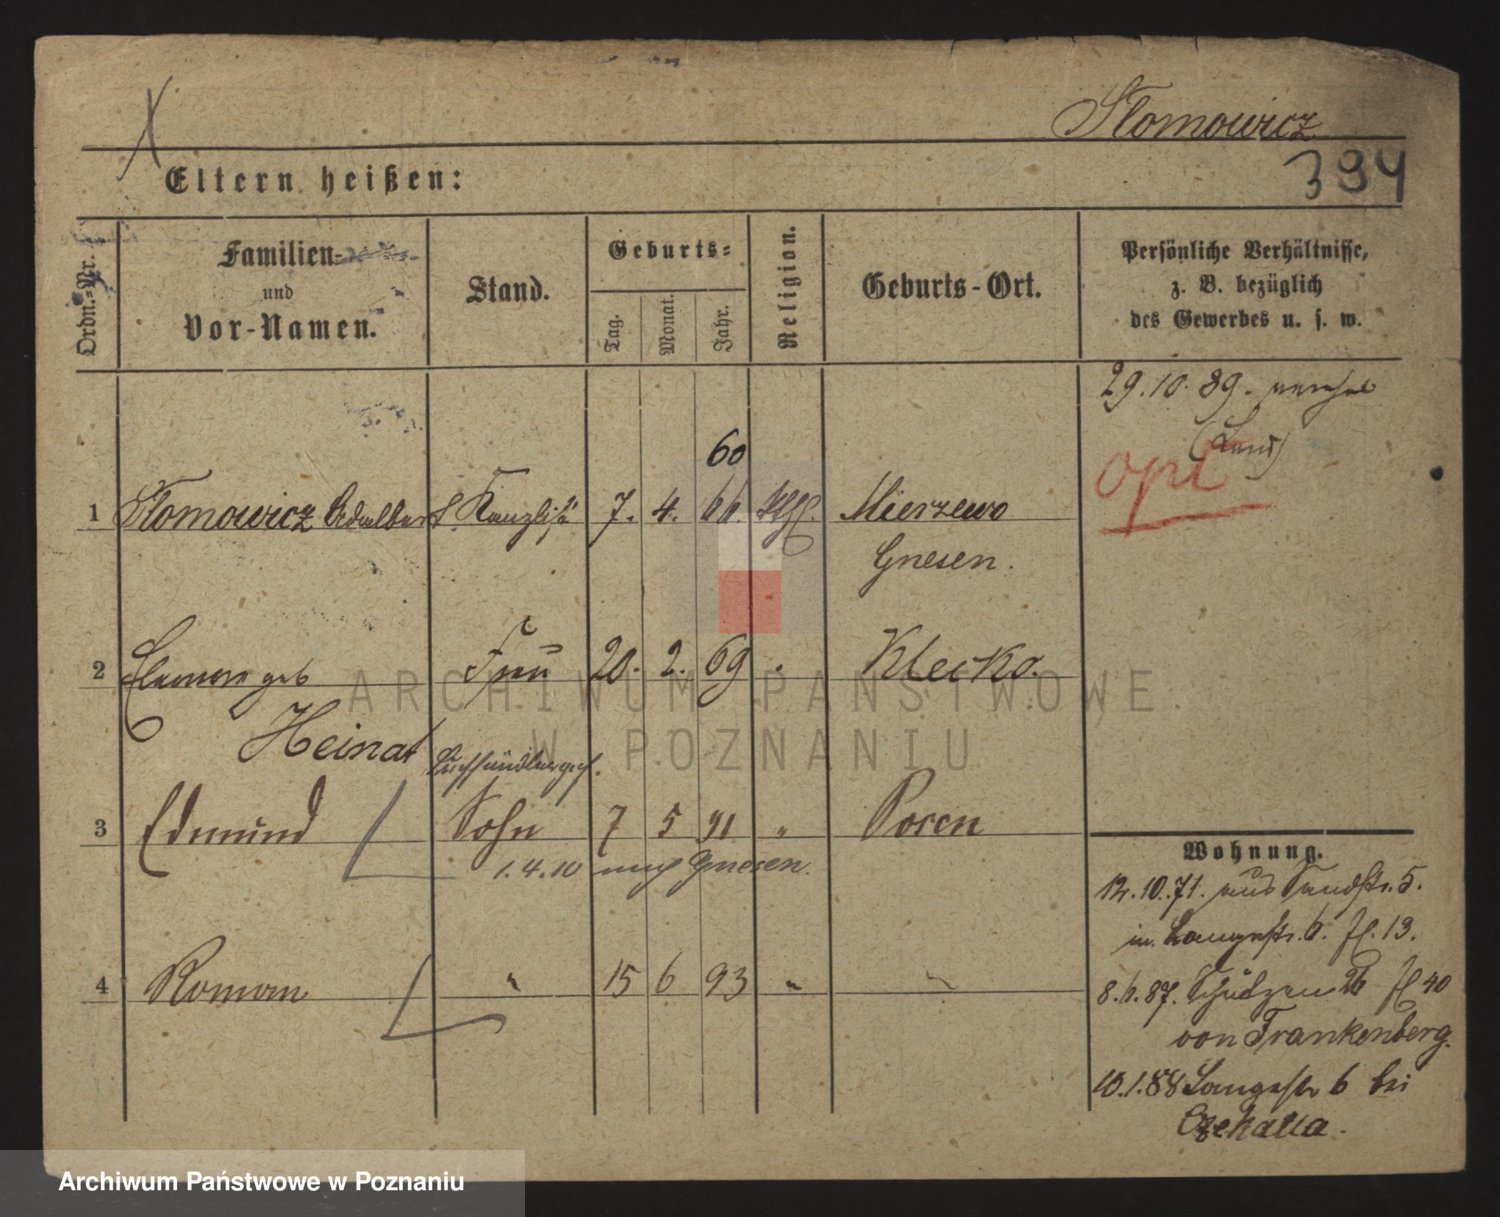 Słomowicz
394
Eltern heißen:
Ordn.-Nr.
Familien-
und
Vor-Namen.
Stand.
Geburts-
Tag.
Monat.
Jahr.
Religion.
Geburts-Ort.
Persönliche Verhältnisse,
z. B. bezüglich
des Gewerbes u. s. w.
29.10.89.
opt
60
1 Słomowicz Adalbert Kanzlist 7. 4. 66. Kth. Mierzewo
Gnesen.
2 geb Frau 20. 2. 69 Klecko.
Heinat
3 Edmund Sohn 7 5 91 " Posen
1.4.10 nach Gnesen.
4 Roman " 15 6 93 " "
Wohnung.
12.10.71. aus Sandstr. 5.
in Langestr. 6. 13.
8.6.87. Schützen 26 40
von Frankenberg.
10.1.88 Langestr 6 bei
Czekalla.
ARCHIWUM PAŃSTWOWE
W POZNANIU
Archiwum Państwowe w Poznaniu